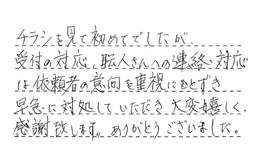 チラシを見て初めてでしたが
受付の対応、職人さんへの連絡、対応
は依頼者の意向を重視にもとずき
早急に対処していただき大変嬉しく、
感謝致します。ありがとうございました。